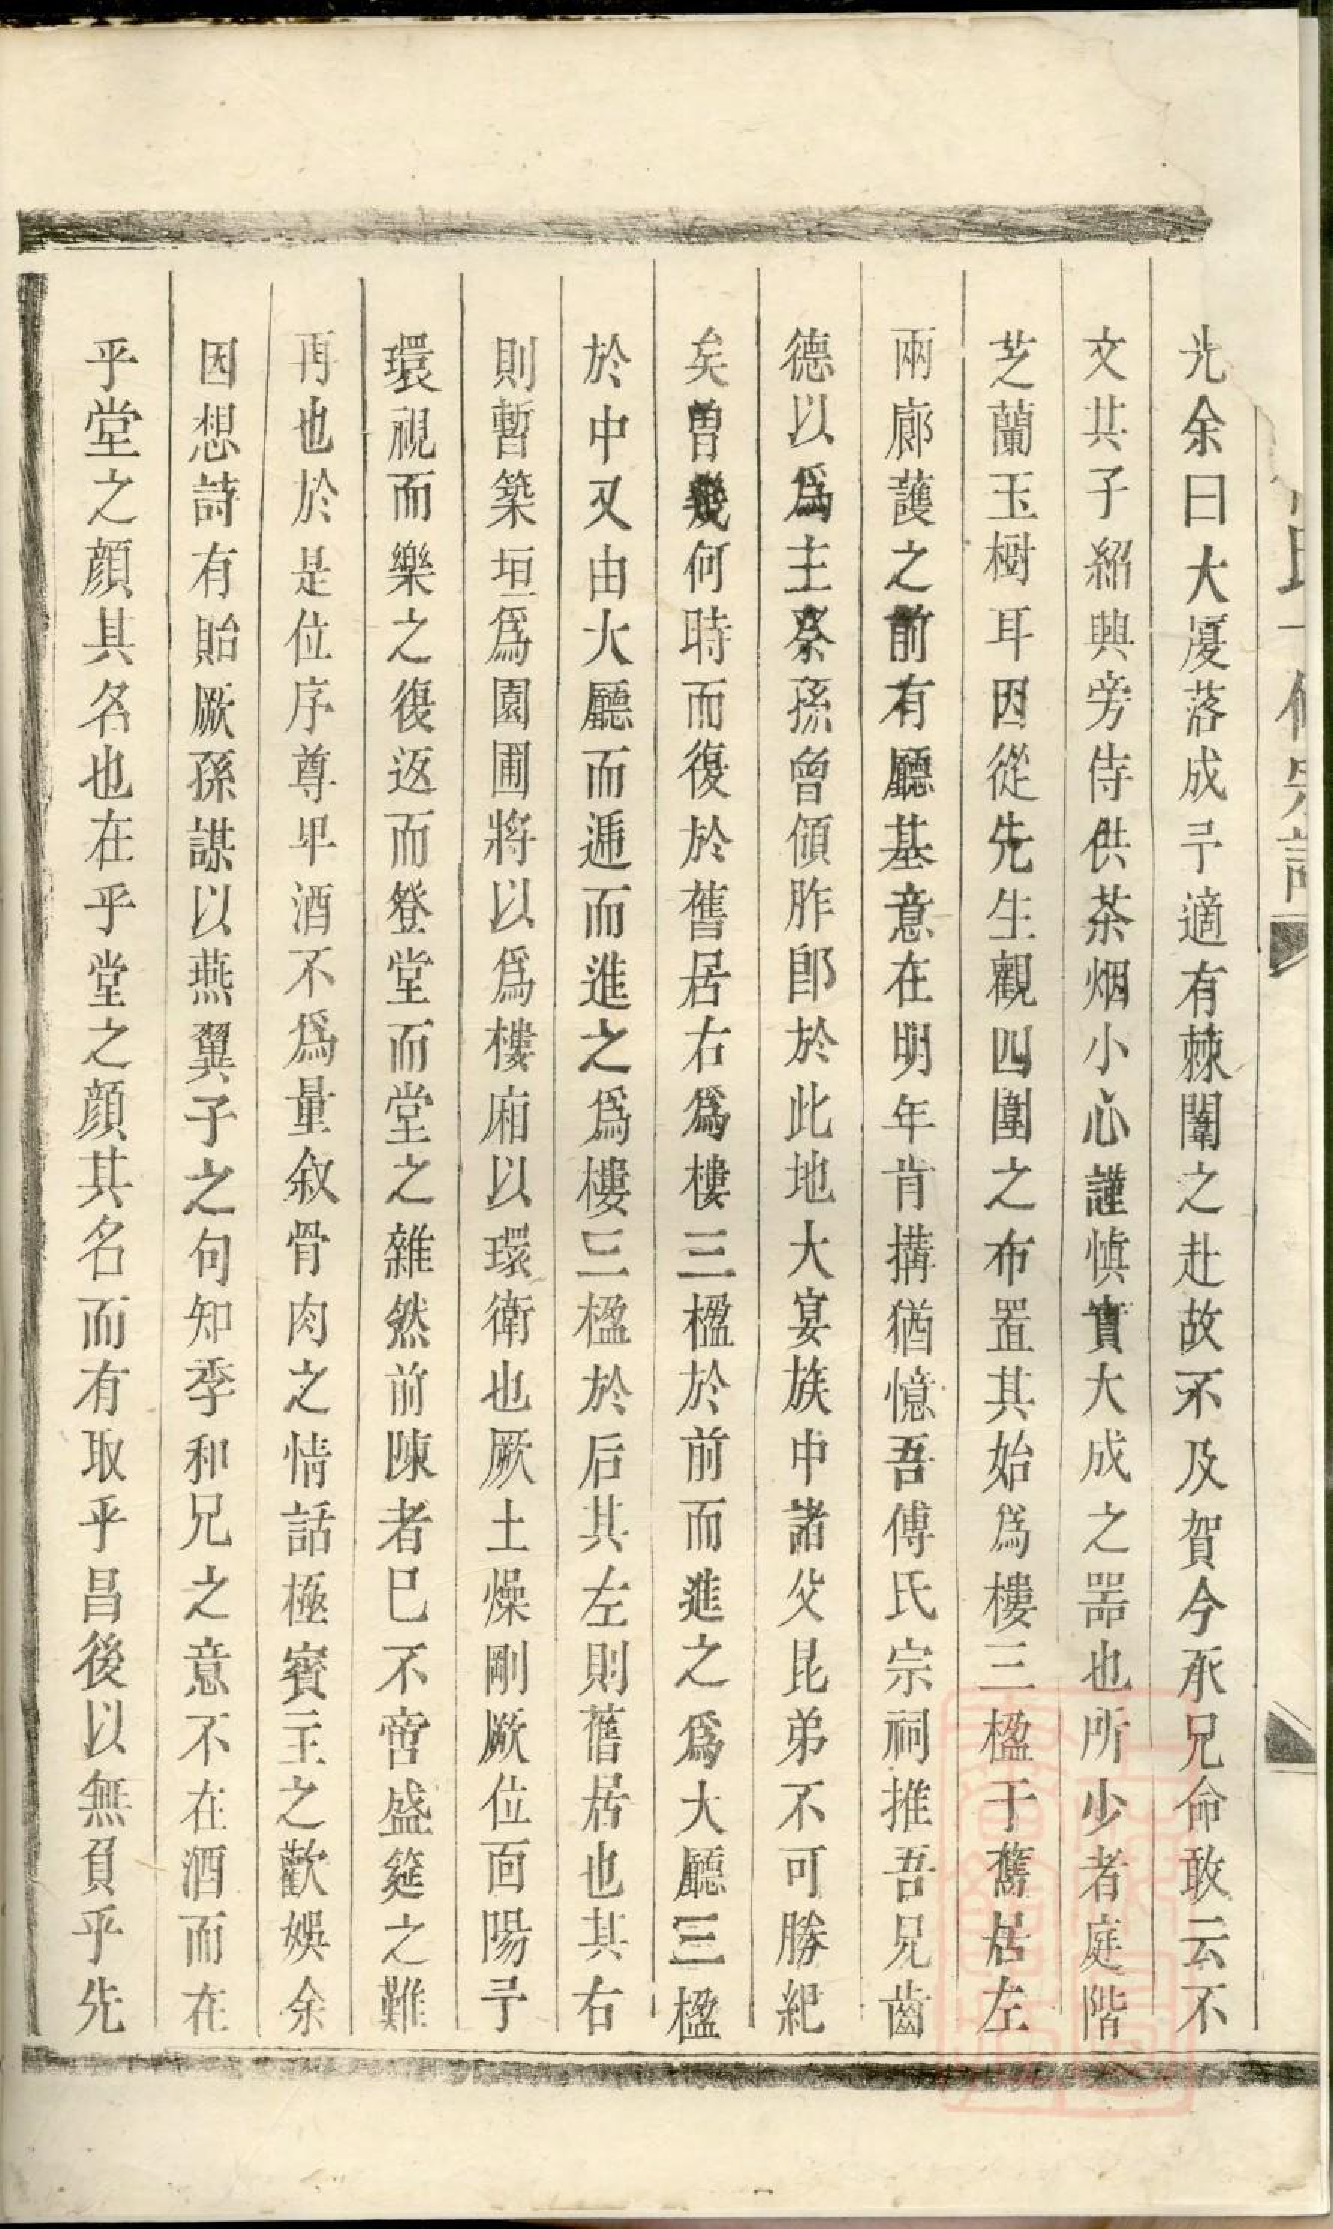 光余曰大廈落成予適有棘闈之赴故不及賀今承兄命敢云不
文其子紹興旁侍供茶烟小心謹慎實大成之噐也所少者庭階
芝蘭玉樹耳因從先生觀四圍之布置其始為樓三楹于舊居左
兩廊護之前有廳基意在明年肯搆猶憶吾傅氏宗祠推吾兄齒
德以爲主祭孫曾傾胙即於此地大宴族中諸父昆弟不可勝紀
矣曾幾何時而復於舊居右爲樓三楹於前而進之為大廳三楹
於中又由大廳而遞而進之爲樓三楹於后其左則舊居也其右
則暫築垣爲園圃將以爲樓廂以環衛也厥土燥剛厥位面陽予
環視而樂之復返而登堂而堂之雜然前陳者已不啻盛筵之難
再也於是位序尊卑酒不爲量敘骨肉之情話極賓主之歡娛余
因想詩有貽厥孫謀以燕翼子之句知季和兄之意不在酒而在
乎堂之顔其名也在乎堂之顔其名而有取乎昌後以無負乎先
氏
修宗譜